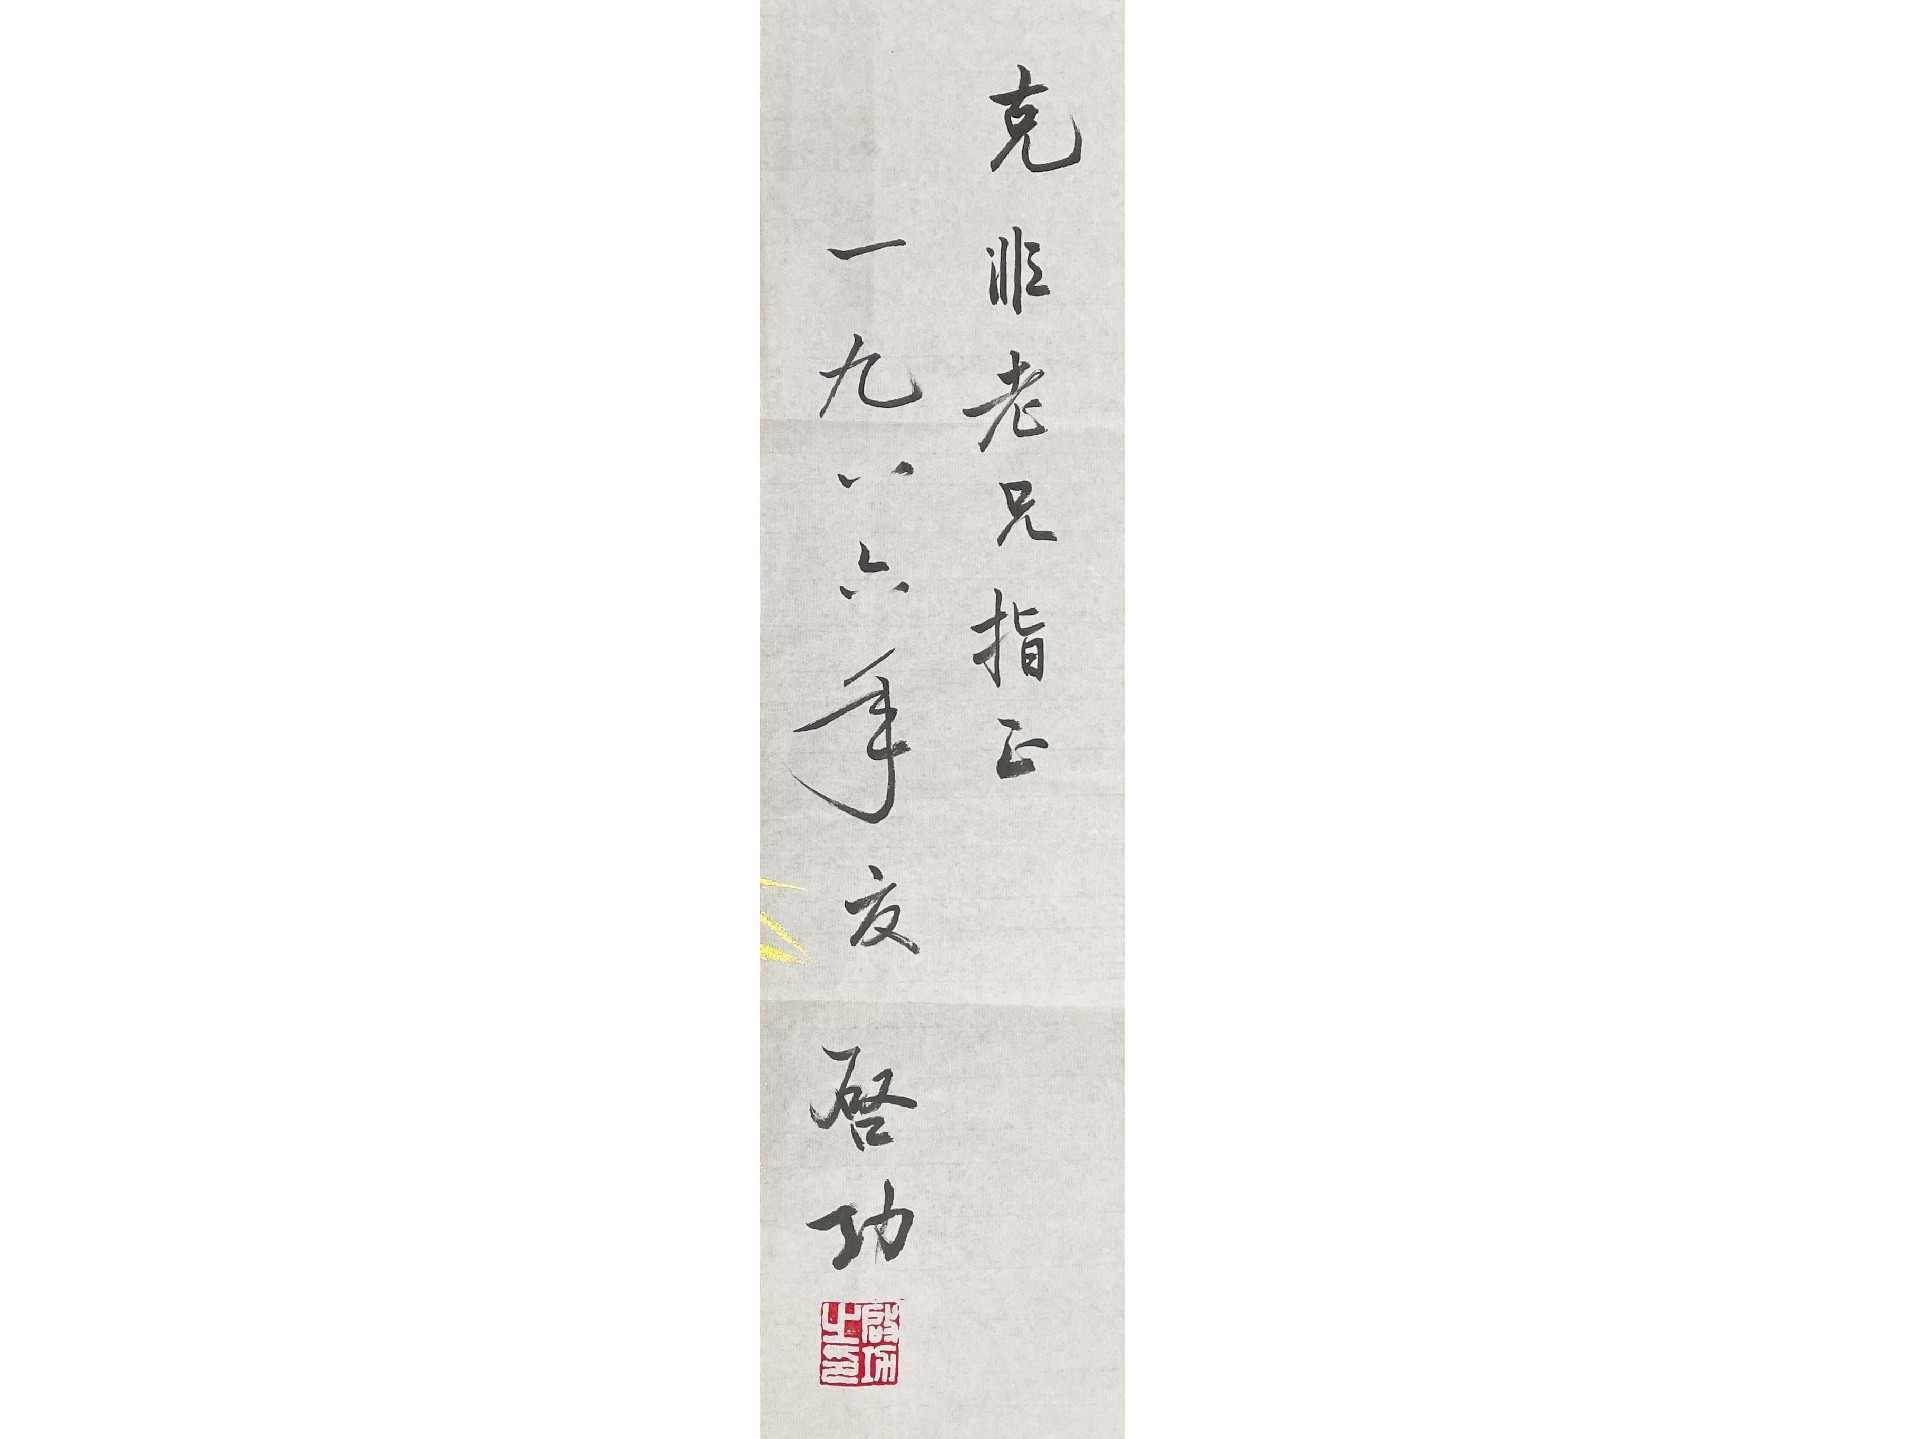 克非老兄指正
一九八六年夏 启功
啟功之印